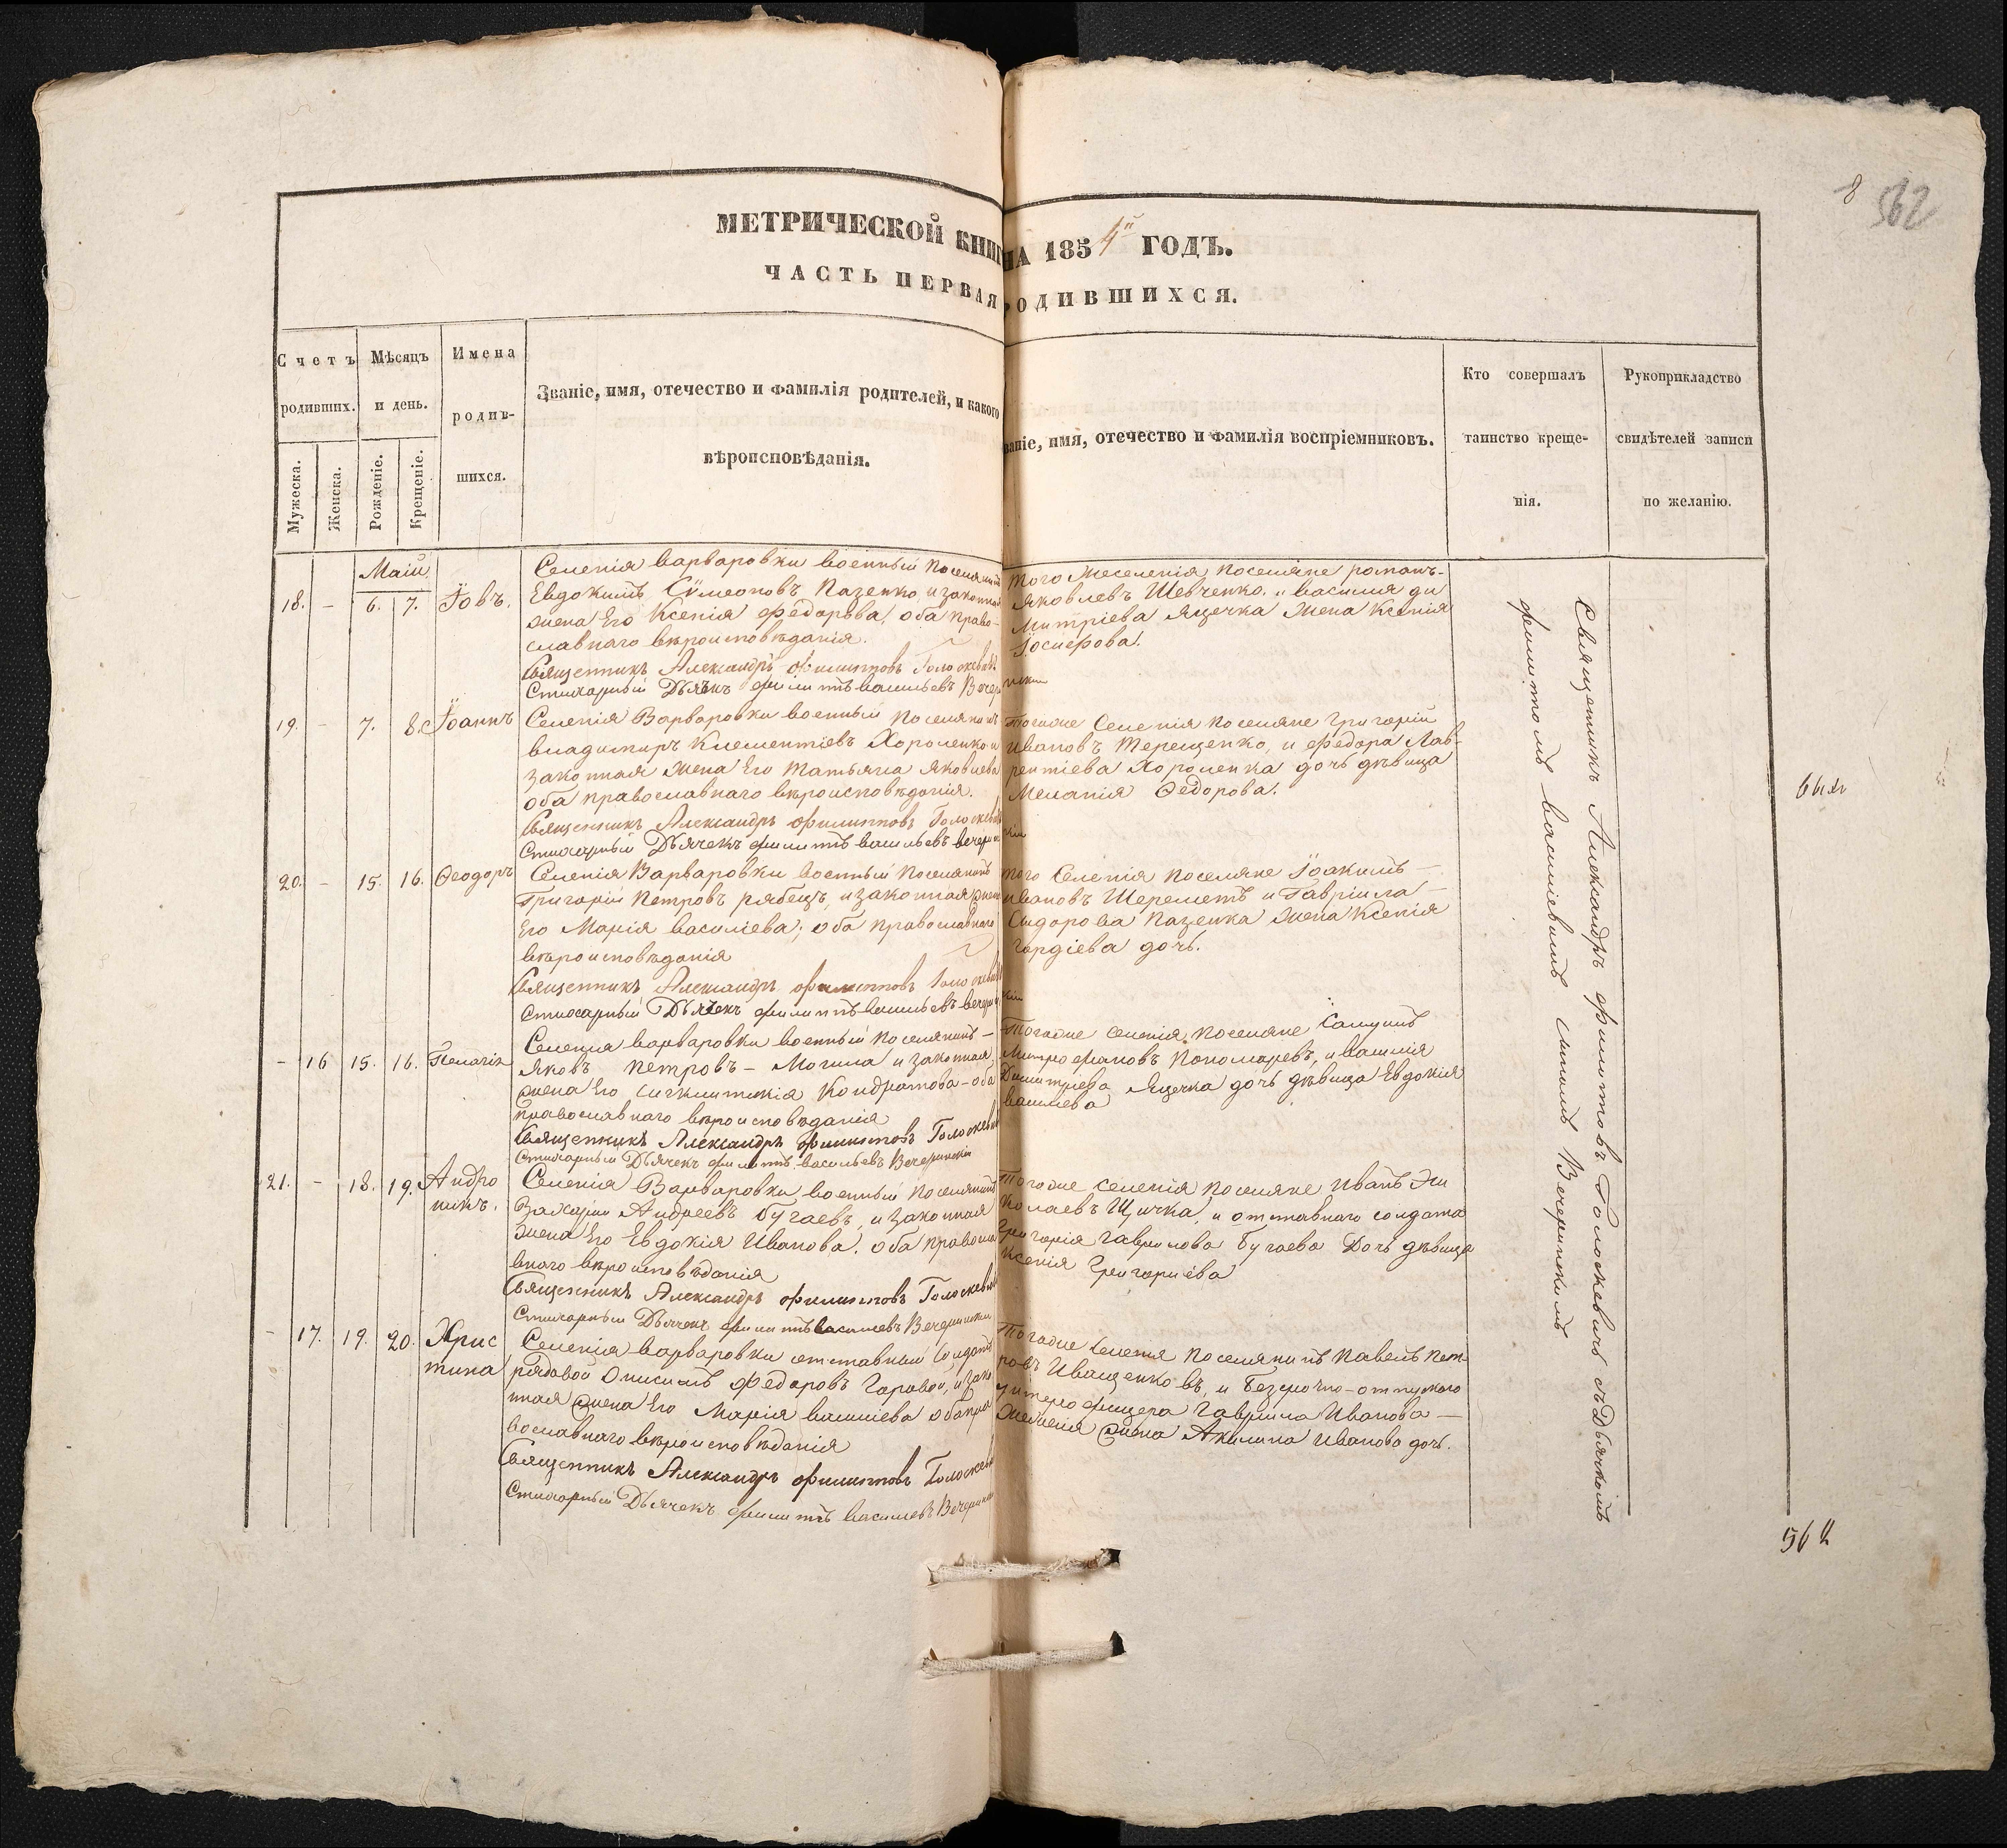 8 562
МЕТРИЧЕСКОЙ КНИГ НА 1854й ГОДЪ.
ЧАСТЬ ПЕРВАЯ РОДИВШИХСЯ.
Счетъ родивших.
Мужеска.
Женска.
Мѣсяцъ и день.
Рожденіе.
Крещеніе.
Имена родив-
шихся.
Званіе, имя, отечество и фамилія родителей, и какого
вѣроисповѣданія.
ваніе, имя, отечество и фамилія воспріемниковъ.
Кто совершалъ
таинство креще-
нія.
Рукоприкладство
свидѣтелей записи
по желанію.
Маій
18. - 6. 7. Іовъ.
Селенія Варваровки военный поселянинъ
Евдокимъ Сѵмеоновъ Пазенко, и законная
жена Его Ксенія Федорова, оба право-
славнаго вѣроисповѣданія.
Священникъ Александръ Филипповъ Голоскевичъ
Стихарный Дьячекъ Филиппъ Васильевъ Вечеринскій
Того же селенія поселяне Романъ-
Яковлевъ Шевченко, и Василия Ди
митріева Ящечка жена Ксенія
Іосифова.
19. - 7. 8. Іоаннъ
Селенія Варваровки военный поселянинъ
Владимиръ Клементіевъ Хороленко и
законная жена Его Татьяна Яковлева
оба православнаго вѣроисповѣданія.
Священникъ Александръ Филипповъ Голоскевичъ
Стихарный Дьячекъ Филиппъ Васильевъ Вечеринскій
Тогоже Селенія поселяне Григорій
Ивановъ Терещенко, и Федора Лав-
рентіева Хороленка дочь дѣвица
Меланія Федорова.
20. - 15. 16. Феодоръ
Селенія Варваровки военный поселянинъ
Григорій Петровъ Рябецъ, и законная жена
Его Марія Василіева; оба православнаго
вѣроисповѣданія
Священникъ Александръ Филипповъ Голоскевичъ
Стихарный Дьячекъ Филиппъ Васильевъ Вечеринскій
того Селенія поселяне Іоакимъ -
Ивановъ Шереметъ и Гавріила -
Сидорова Пазенка жена Ксенія
Гордіева дочь.
- 16 15. 16. Пелагія
Селенія Варваровки военный поселянинъ -
Яковъ Петровъ - Могила и законная
жена Его Кондратова - оба
православнаго вѣроисповѣданія
Священникъ Александръ Филипповъ Голоскевичъ
Стихарный Дьячекъ Филиппъ Васильевъ Вечеринскій
Тогоже селенія поселяне
Митрофановъ Пономаревъ, и Василія
Димитріева Ящечка дочь дѣвица Евдокія
Василева
21. - 18. 19. Андро
никъ.
Селенія Варваровки военный поселянинъ
Захарій Андреевъ Бугаевъ, и законная
жена Его Евдокія Иванова. оба правосла
внаго вѣроисповѣданія
Священникъ Александръ Филипповъ Голоскевичъ
Стихарный Дьячекъ Филиппъ Василиевъ Вечеринскій
Тогоже селенія поселяне Иванъ Ни
колаевъ Щичка, и отставнаго солдата
Григорія Гаврилова Бугаева Дочь дѣвица
Ксенія Григориева
- 17. 19. 20. Хрис
тина
Селенія Варваровки отставный солдатъ
рядовой Онисимъ Федоровъ Горовой, и зако
нная жена Его Марія Василіева оба пра
вославнаго вѣроисповѣданія
Священникъ Александръ Филипповъ Голоскевичъ
Стихарный Дьячекъ Филиппъ Василиевъ Вечеринскій
Тогоже селенія поселянинъ Павелъ Пет-
ровъ Иващенковъ, и безсрочно-отпускного
унтерофицера Гавриила Иванова -
жена Акилина Иванова дочь.
Священникъ Александръ Филиповъ Голоскевичъ съ Дьячкомъ
Филиппомъ Василіевымъ сыномъ Вечеринскимъ
562